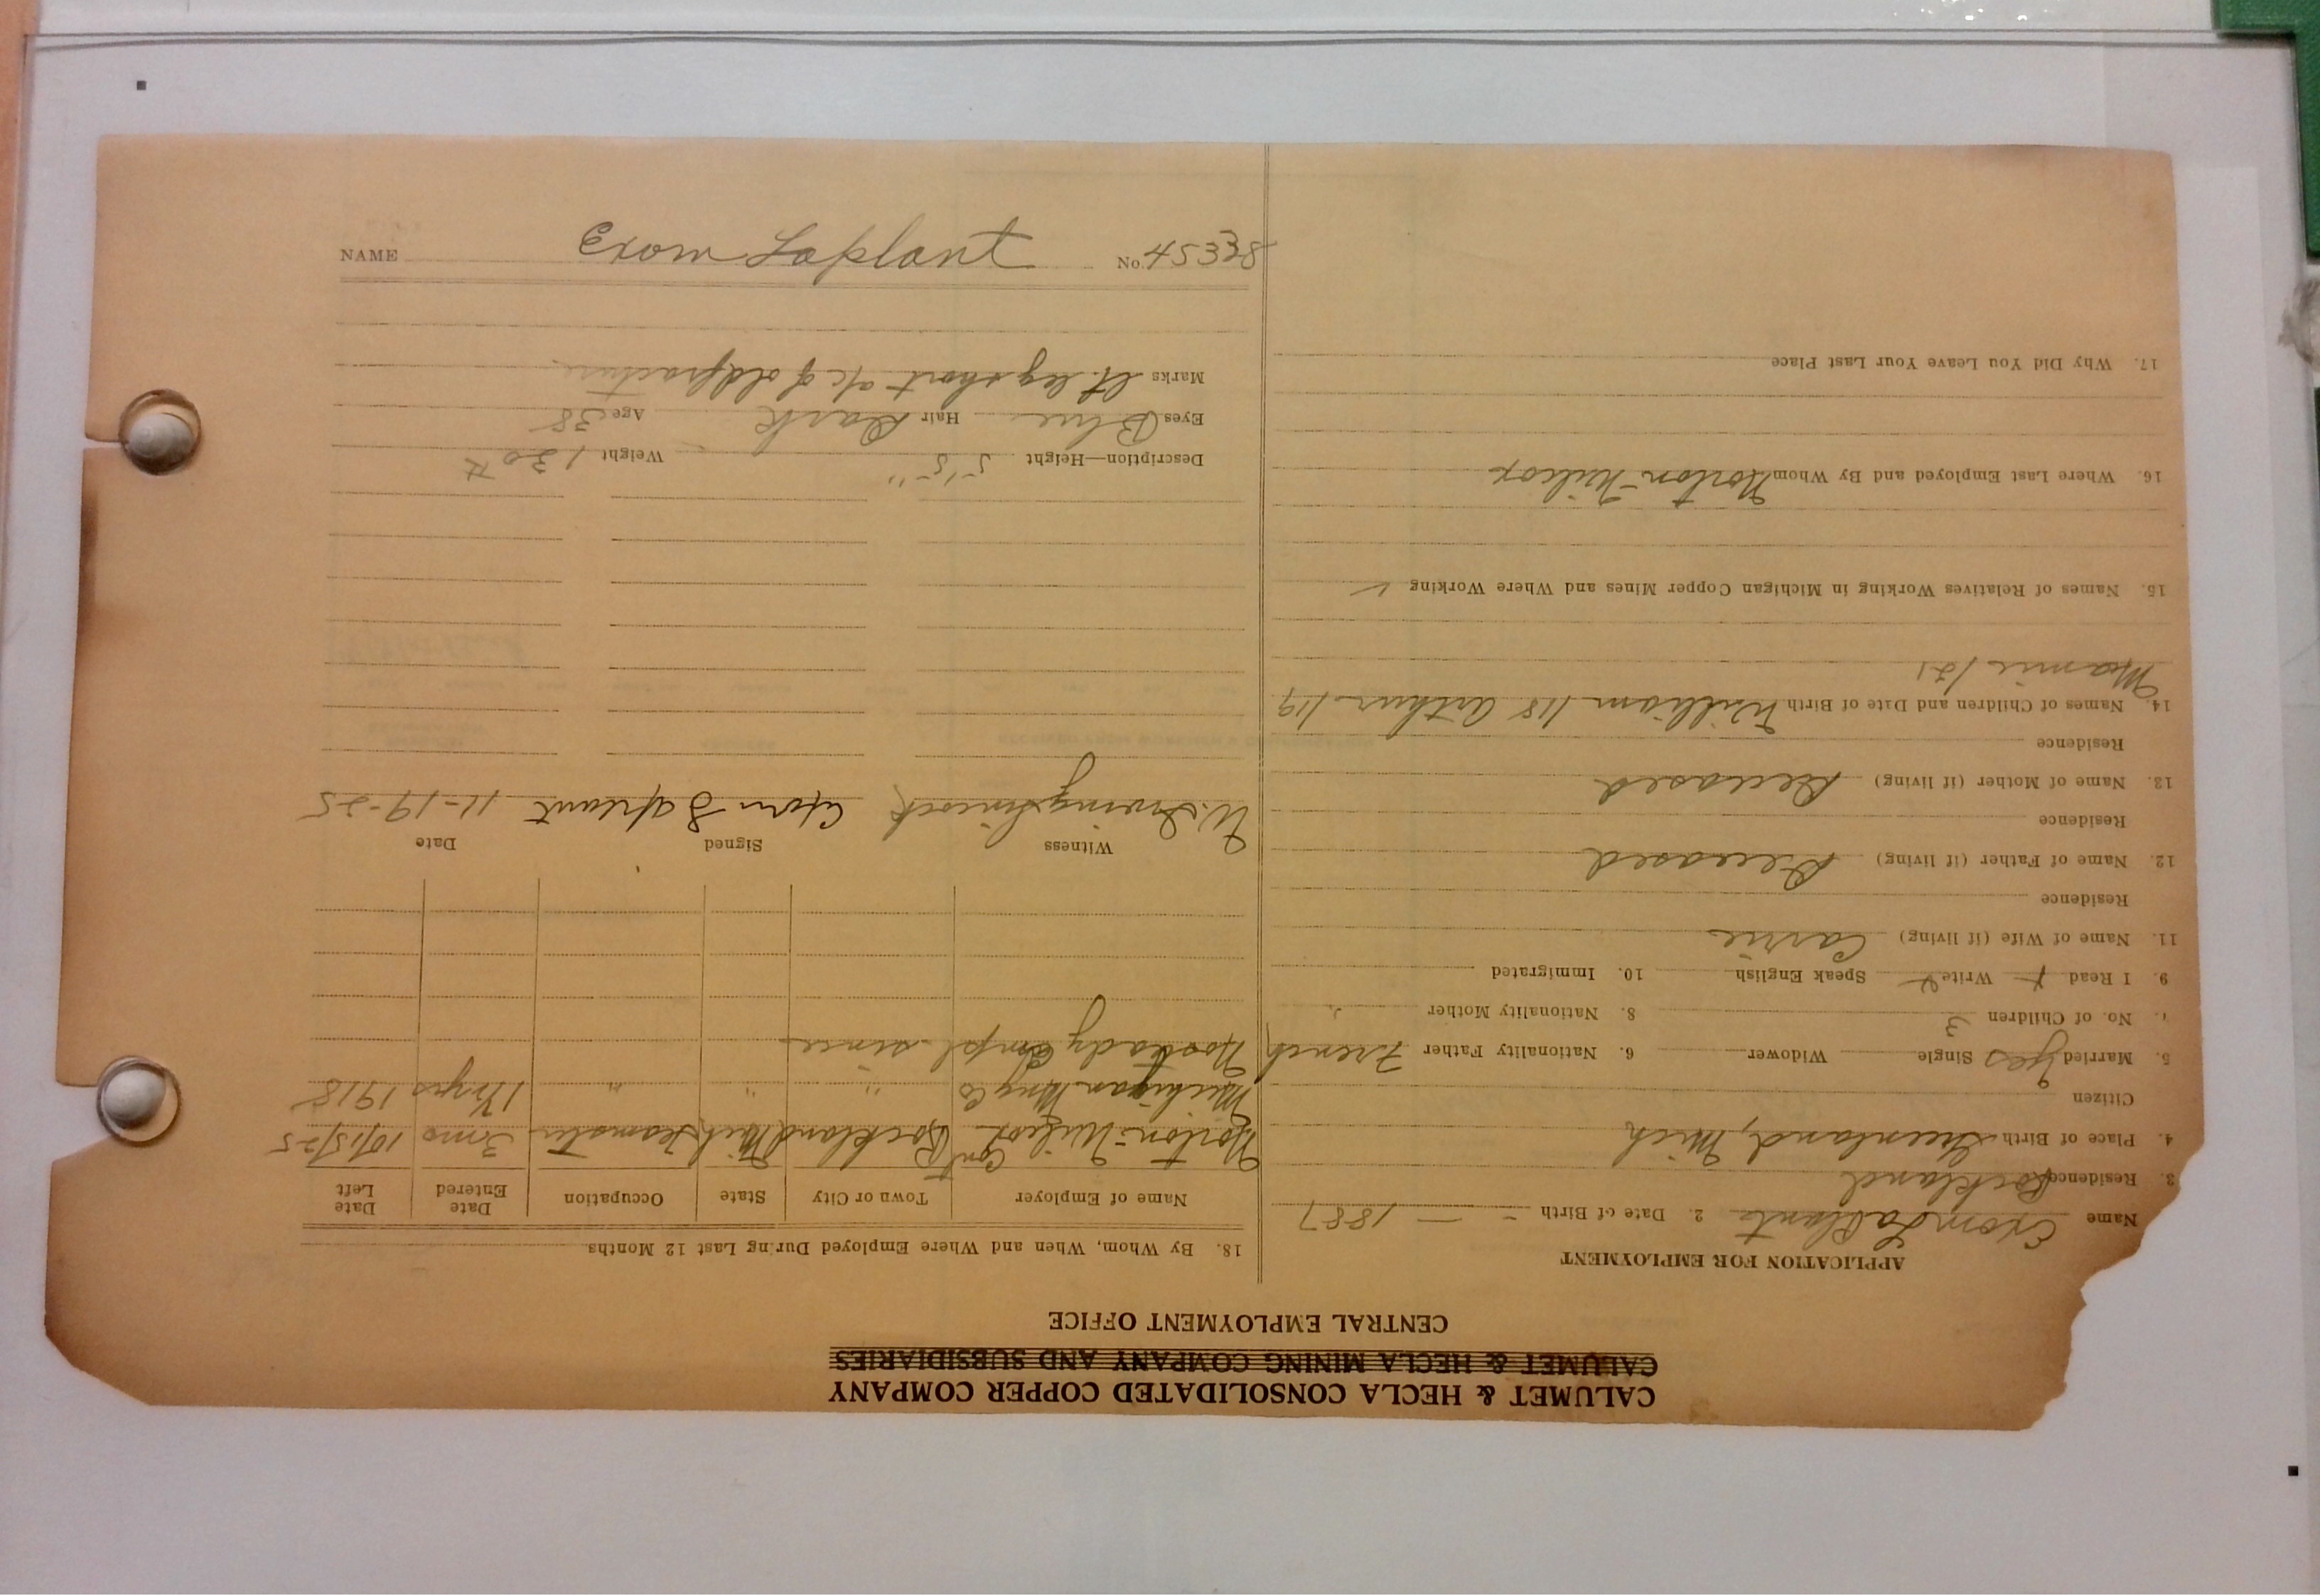 CALUMET & HECLA CONSOLIDATED COPPER COMPANY
CALUMET & HECLA MINING COMPANY AND SUBSIDIARIES
CENTRAL EMPLOYMENT OFFICE
APPLICATION FOR EMPLOYMENT
Name Exom LaPlant 2. Date of Birth — — 1887
3. Residence Rockland
4. Place of Birth Greenland, Mich
Citizen
5. Married Yes Single Widower 6. Nationality Father French
7. No. of Children 3 8. Nationality Mother "
9. I Read Write Speak English 10. Immigrated
11. Name of Wife (if living) Carrie
Residence
12. Name of Father (if living) Deceased
Residence
13. Name of Mother (if living) Deceased
Residence
14. Names of Children and Date of Birth William 1/8 Arthur 1/9
Mamie 1/21
15. Names of Relatives Working in Michigan Copper Mines and Where Working
16. Where Last Employed and By Whom Norton-Wilcox
17. Why Did You Leave Your Last Place
18. By Whom, When and Where Employed During Last 12 Months
Name of Employer Town or City State Occupation Date Entered Date Left
Norton-Wilcox Cont Rockland Mich Teamster 3 mo 10/15/25
Michigan Mng Co " " " 1918
No steady empl. since
Witness Signed Date
W. Irving Exom Laplant 11-19-25
Description—Height 5'-5" Weight 130 #
Eyes Blue Hair Dark Age 38
Marks Lt. leg short a/c of old fracture
NAME Exom Laplant No. 45338